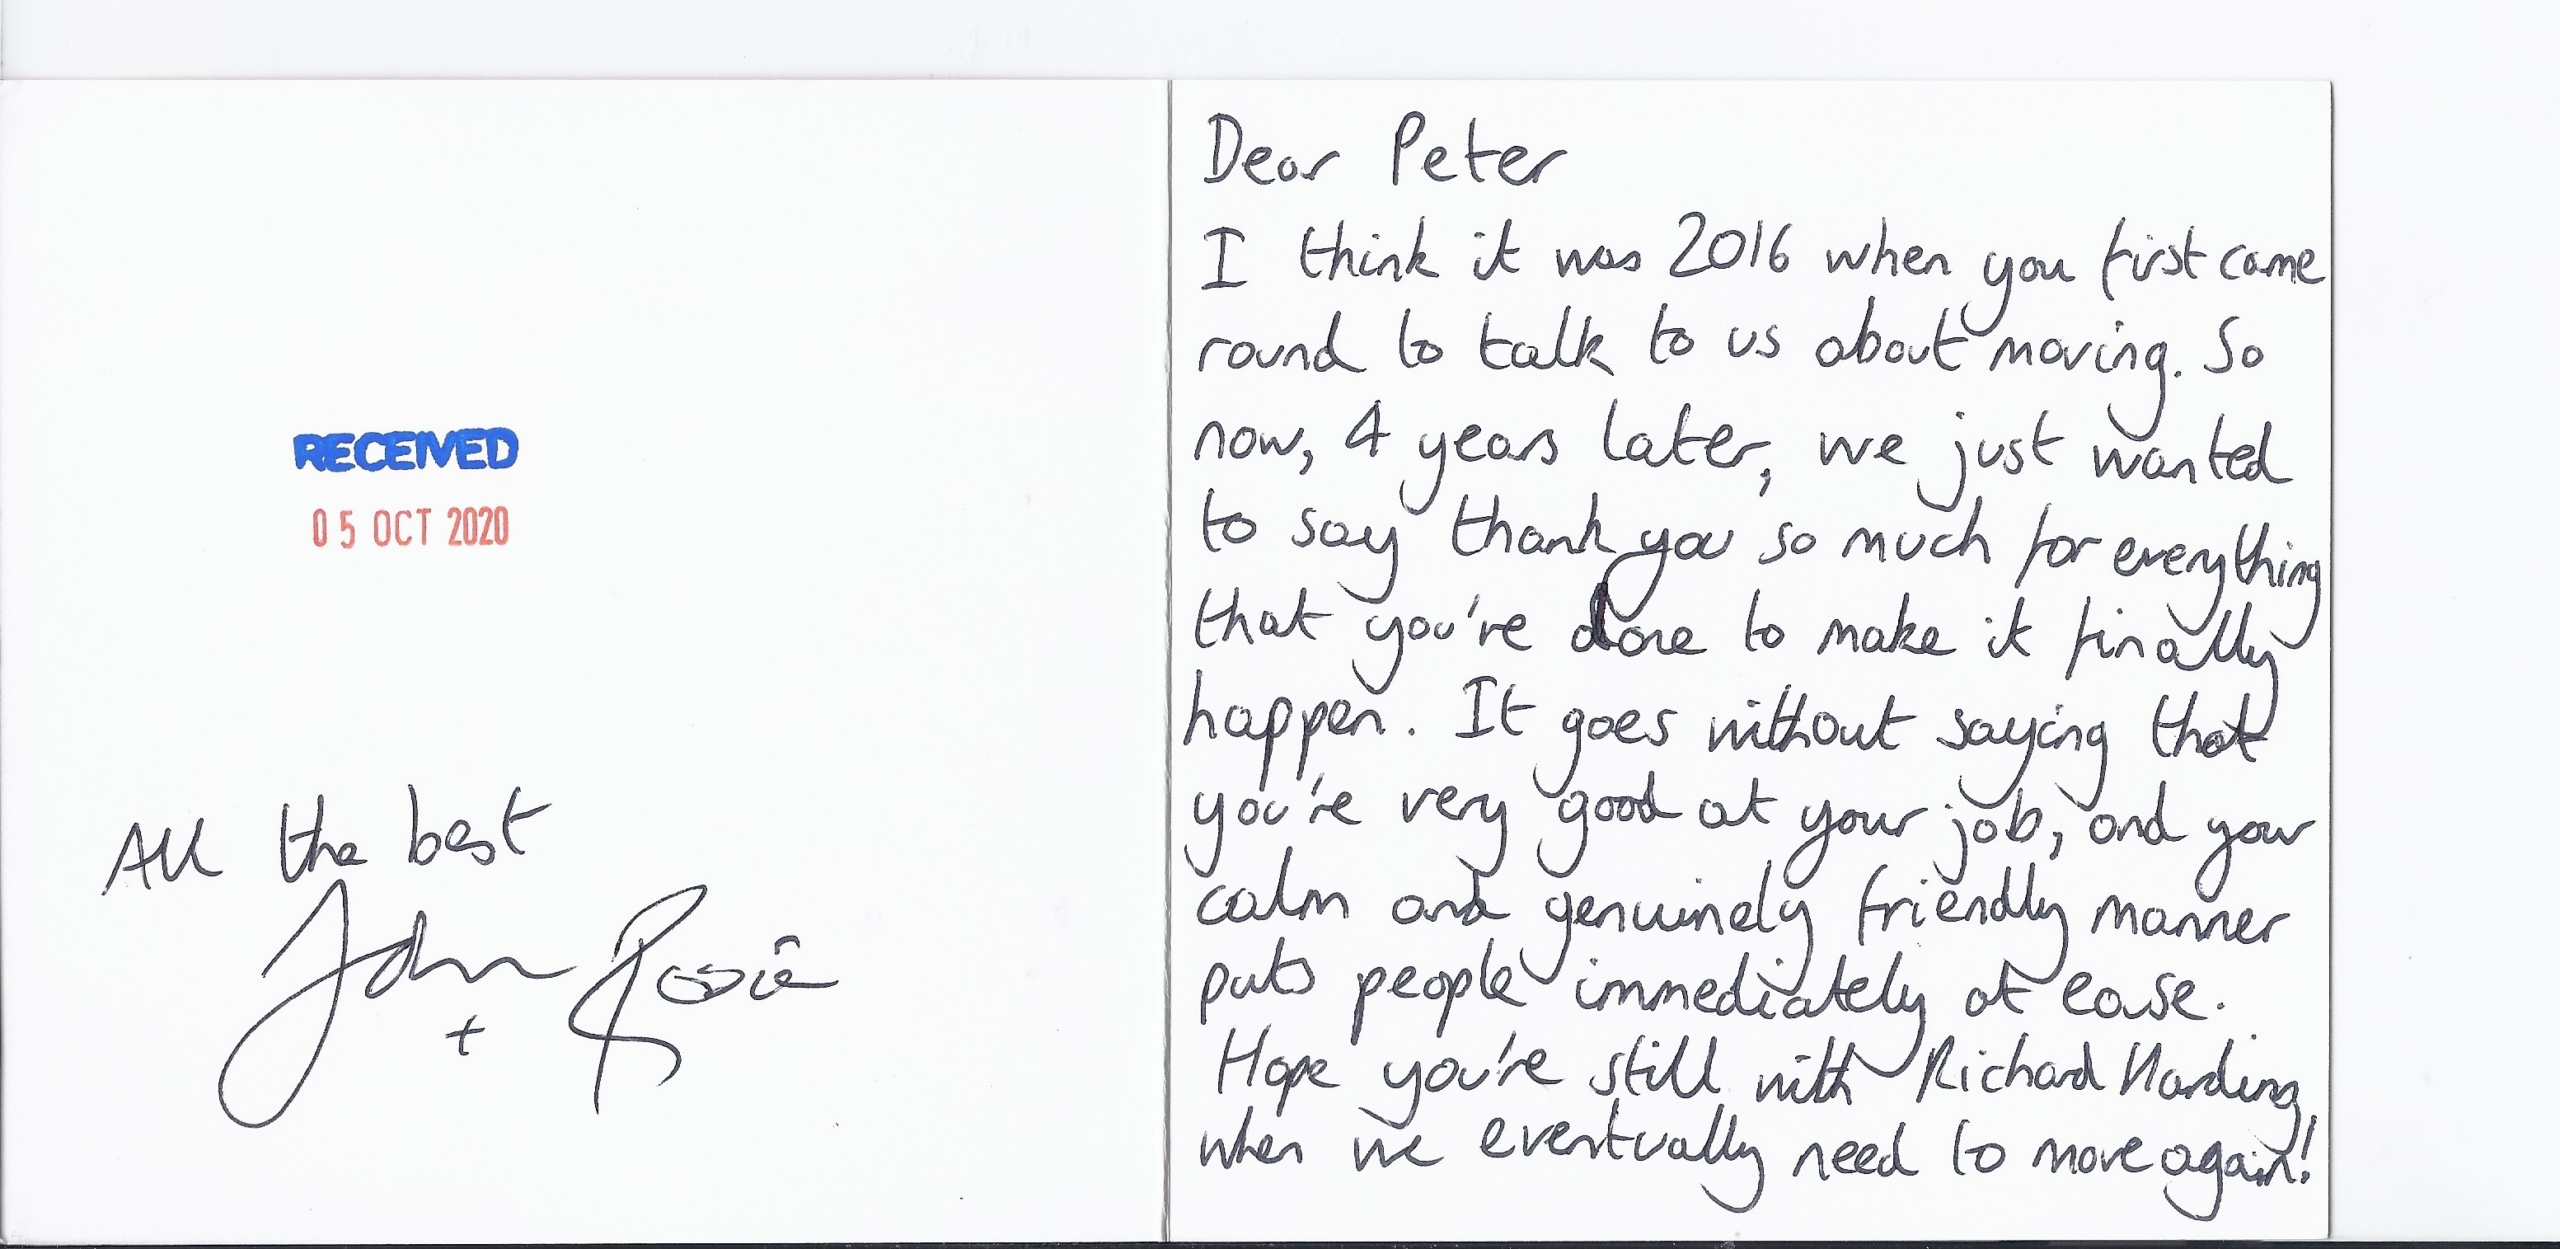 RECEIVED
05 OCT 2020
All the best
John
+ Rosie
Dear Peter
I think it was 2016 when you first came
round to talk to us about moving. So
now, 4 years later, we just wanted
to say thank you so much for everything
that you're done to make it finally
happen. It goes without saying that
you're very good at your job, and your
calm and genuinely friendly manner
puts people immediately at ease.
Hope you're still with Richard Harding,
when we eventually need to move again!